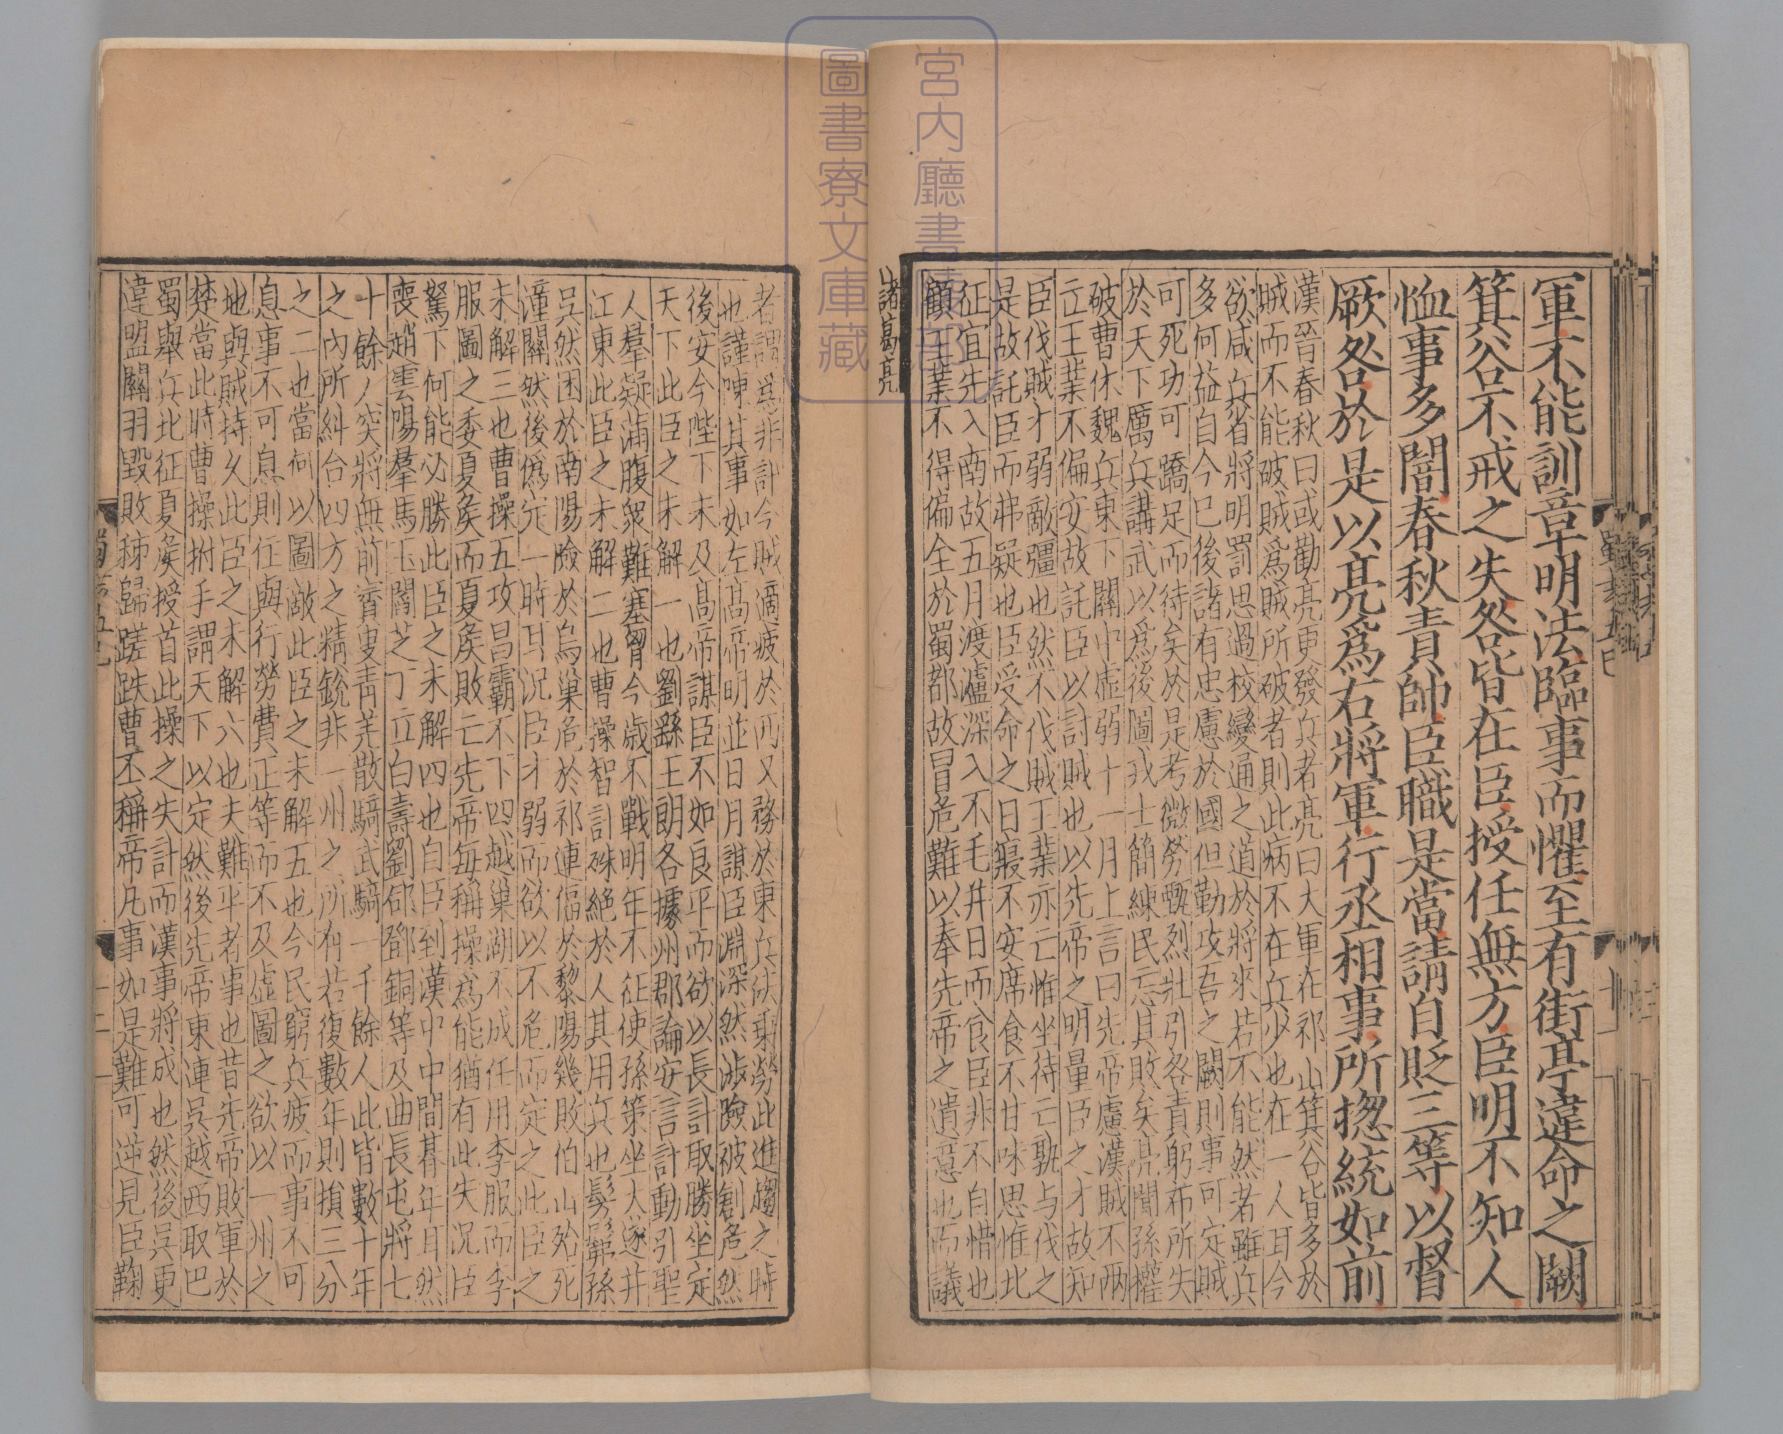 軍不能訓章明法臨事而懼至有街亭違命之闕
箕谷不戒之失咎皆在臣授任無方臣明不知人
恤事多闇春秋責帥臣職是當請自貶三等以督
厥咎於是以亮爲右將軍行丞相事所揔統如前
漢晉春秋曰或勸亮更發兵者亮曰大軍在祁山箕谷皆多於
賊而不能破賊爲賊所破者則此病不在兵少也在一人耳今
欲减兵省將明罰思過校變通之道於將來若不能然者雖兵
多何益自今已後諸有忠慮於國但勤攻吾之闕則事可定賊
可死功可蹻足而待矣於是考微勞甄烈壯引咎責躬布所失
於天下厲兵講武以爲後圖戎士簡練民忘其敗矣亮聞孫權
破曹休魏兵東下關中虛弱十一月上言曰先帝慮漢賊不兩
立王業不偏安故託臣以討賊也以先帝之明量臣之才故知
臣伐賊才弱敵彊也然不伐賊王業亦亡惟坐待亡孰与伐之
是故託臣而弗疑也臣受命之日寢不安席食不甘味思惟北
征宜先入南故五月渡瀘深入不毛并日而食臣非不自惜也
顧王業不得偏全於蜀都故冒危難以奉先帝之遺意也而議
諸葛亮
宮内廳書陵部
圖書寮文庫藏
者謂爲非計今賊適疲於西又務於東兵法乘勞此進趨之時
也謹陳其事如左高帝明並日月謀臣淵深然涉險被創危然
後安今陛下未及高帝謀臣不如良平而欲以長計取勝坐定
天下此臣之未解一也劉繇王朗各據州郡論安言計動引聖
人羣疑滿腹衆難塞胷今歳不戰明年不征使孫策坐大遂并
江東此臣之未解二也曹操智計殊絶於人其用兵也髣髴孫
吳然困於南陽險於烏巢危於祁連偪於黎陽幾敗伯山殆死
潼關然後僞定一時耳況臣才弱而欲以不危而定之此臣之
未解三也曹操五攻昌霸不下四越巢湖不成任用李服而李
服圖之委夏矦而夏矦敗亡先帝每稱操爲能猶有此失況臣
駑下何能必勝此臣之未解四也自臣到漢中中間朞年耳然
喪趙雲陽羣馬玉閻芝丁立白壽劉郃鄧銅等及曲長屯將七
十餘人突將無前賨叟靑羌散騎武騎一千餘人此皆數十年
之內所糾合四方之精銳非一州之所有若復數年則損三分
之二也當何以圖敵此臣之未解五也今民窮兵疲而事不可
息事不可息則住與行勞費正等而不及虛圖之欲以一州之
地與賊持久此臣之未解六也夫難平者事也昔先帝敗軍於
楚當此時曹操拊手謂天下以定然後先帝東連吳越西取巴
蜀舉兵北征夏矦授首此操之失計而漢事將成也然後吳更
違盟關羽毀敗秭歸蹉跌曹丕稱帝凡事如是難可逆見臣鞠